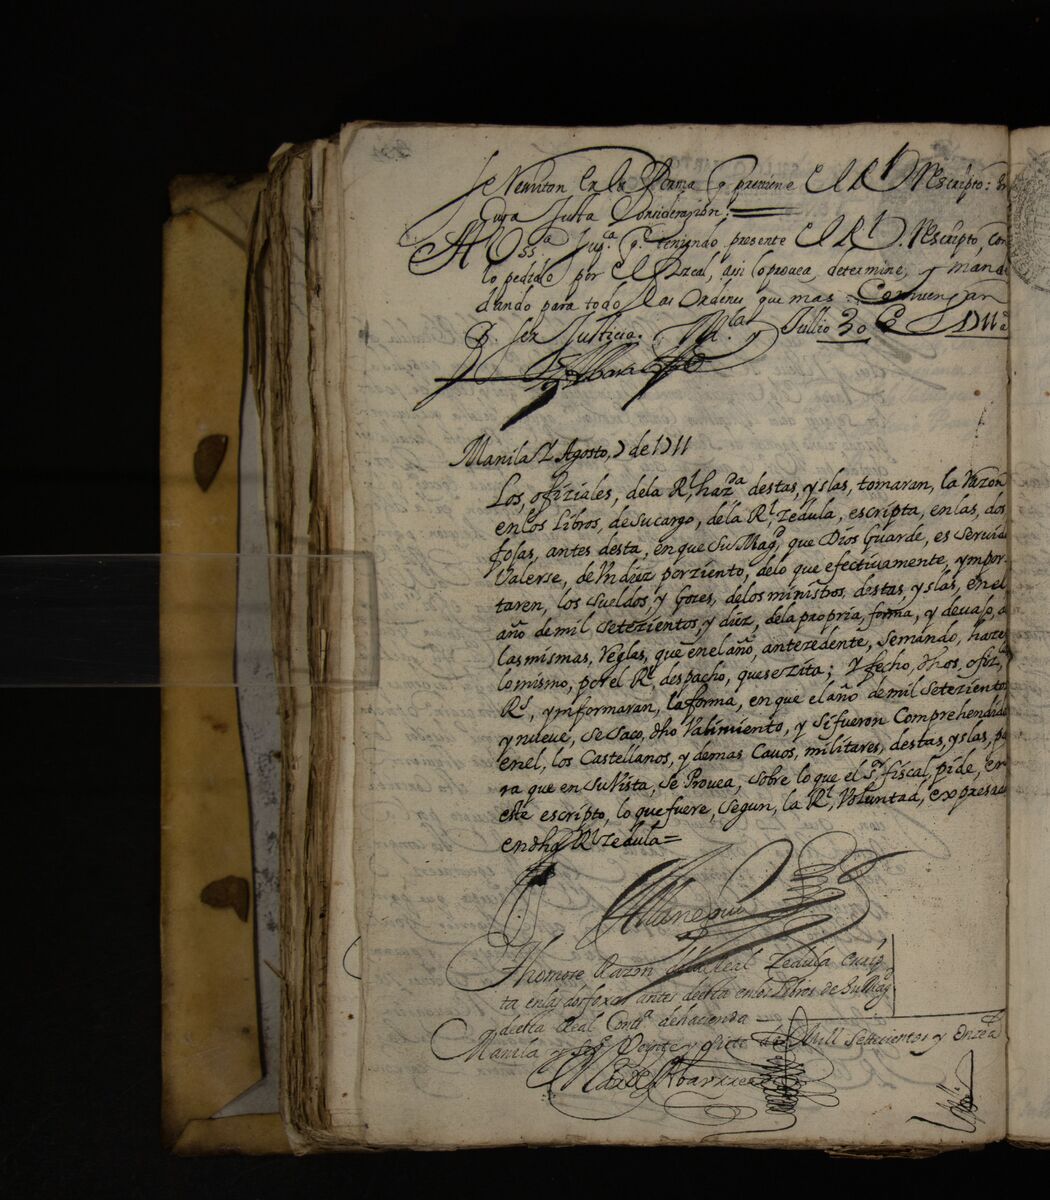 se Remiton En la forma q previene El Rl Rescripto: En
Cuya Justa Considerazion:
A Vssa. Supca. qe. teniendo presente El Rl. Rescripto, con
lo pedido por El Fiscal, asi lo provea, determine, y man
dando para todo las Ordenes que mas Convengan
q. ser Justicia. Mla. y Jullio 30 de 1711 as
Manila y Agosto, 7 de 1711
Los, ofiziales, dela Rl. hazda. destas, yslas, tomaran, la Razon
en los Libros, de su cargo, dela Rl. zedula, escripta, en las, dos
fojas, antes desta, en que su Magd. que Dios Guarde, es servido
Valerse, de Un diez por ziento, delo que efectivamente, ympor
taren, los sueldos, y Gozes, delos ministros, destas, yslas, en el
año de mil setezientos, y diez, dela propria, forma, y devajo, de
las mismas, Reglas, que en el año, antezedente, se mando, hazer
lo mismo, por el Rl. despacho, que se zita; y fecho, dhos, ofizs.
Rs., ynformaran, la forma, en que el año de mil setezientos
y nueve, se saco, dho Valimiento, y si fueron Comprehendidos
en el, los Castellanos, y demas Cavos, militares, destas, yslas, pa
ra que en su Vista, se Provea, sobre lo que el Sr. fiscal, pide, en
este escripto, lo que fuere, segun, la Rl. Voluntad, expresada
en dha Rl. zedula=
Thomose Razon dela Real Zedula escrip
ta en las dos foxas antes desta en los Libros de su Magd.
desta Real Contta. de hacienda
Manila y Veynte y siete de Mill Settecientos y Onze as